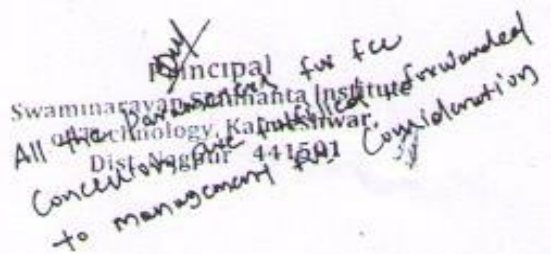 Principal
Swaminarayan Siddhanta Institute
of Technology, Kalmeshwar.
Dist. Nagpur 441501
All the parameters for fee
Concession are fulfilled & forwarded
to management for Consideration